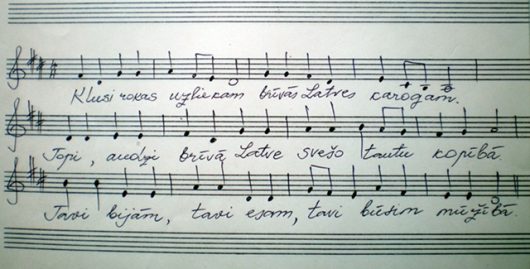 Klusi rokas uzliekam brīvās Latves karogam.
Topi, audzi brīvā Latve svešo tautu kopībā.
Tavi bijām, tavi esam, tavi būsim mūžībā.